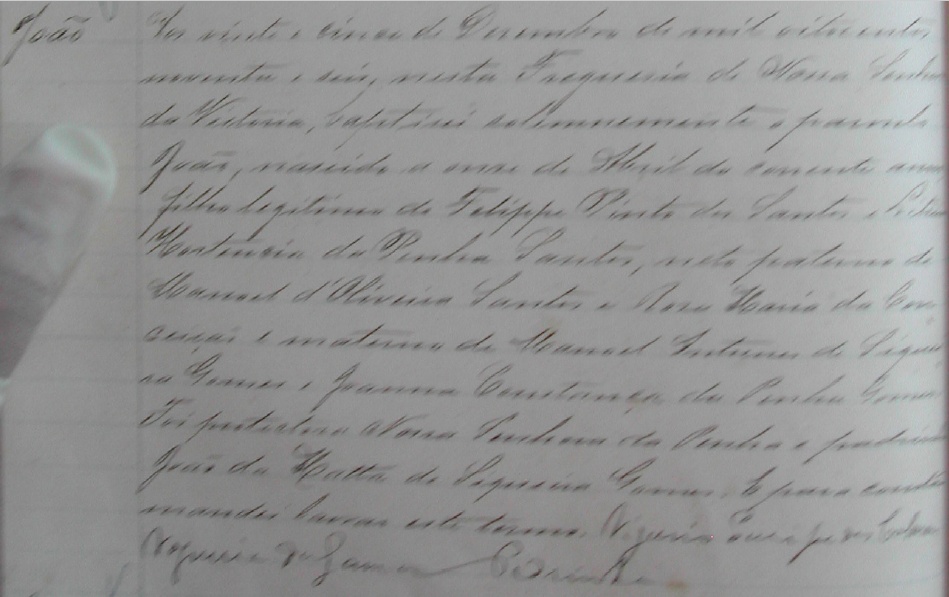 João
Aos vinte e cinco de Dezembro de mil oitocentos
noventa e seis, nesta Freguesia de Nossa Senhora
da Victoria, baptisei solemnemente o parvulo
João, nascido a onze de Abril do corrente anno
filho legitimo de Felippe Pinto dos Santos e
Hortencia da Penha Santos, neto paterno de
Manoel d'Oliveira Santos e Rosa Maria da Con-
ceição e materno de Manoel Antunes de Siquei-
ra Gomes e Joanna Constança da Penha Gomes
Foi protectora Nossa Senhora da Penha e padrinho
João da Matta de Siqueira Gomes. E para constar
mandei lavrar este termo. O Vigario
Nogueira da Gama